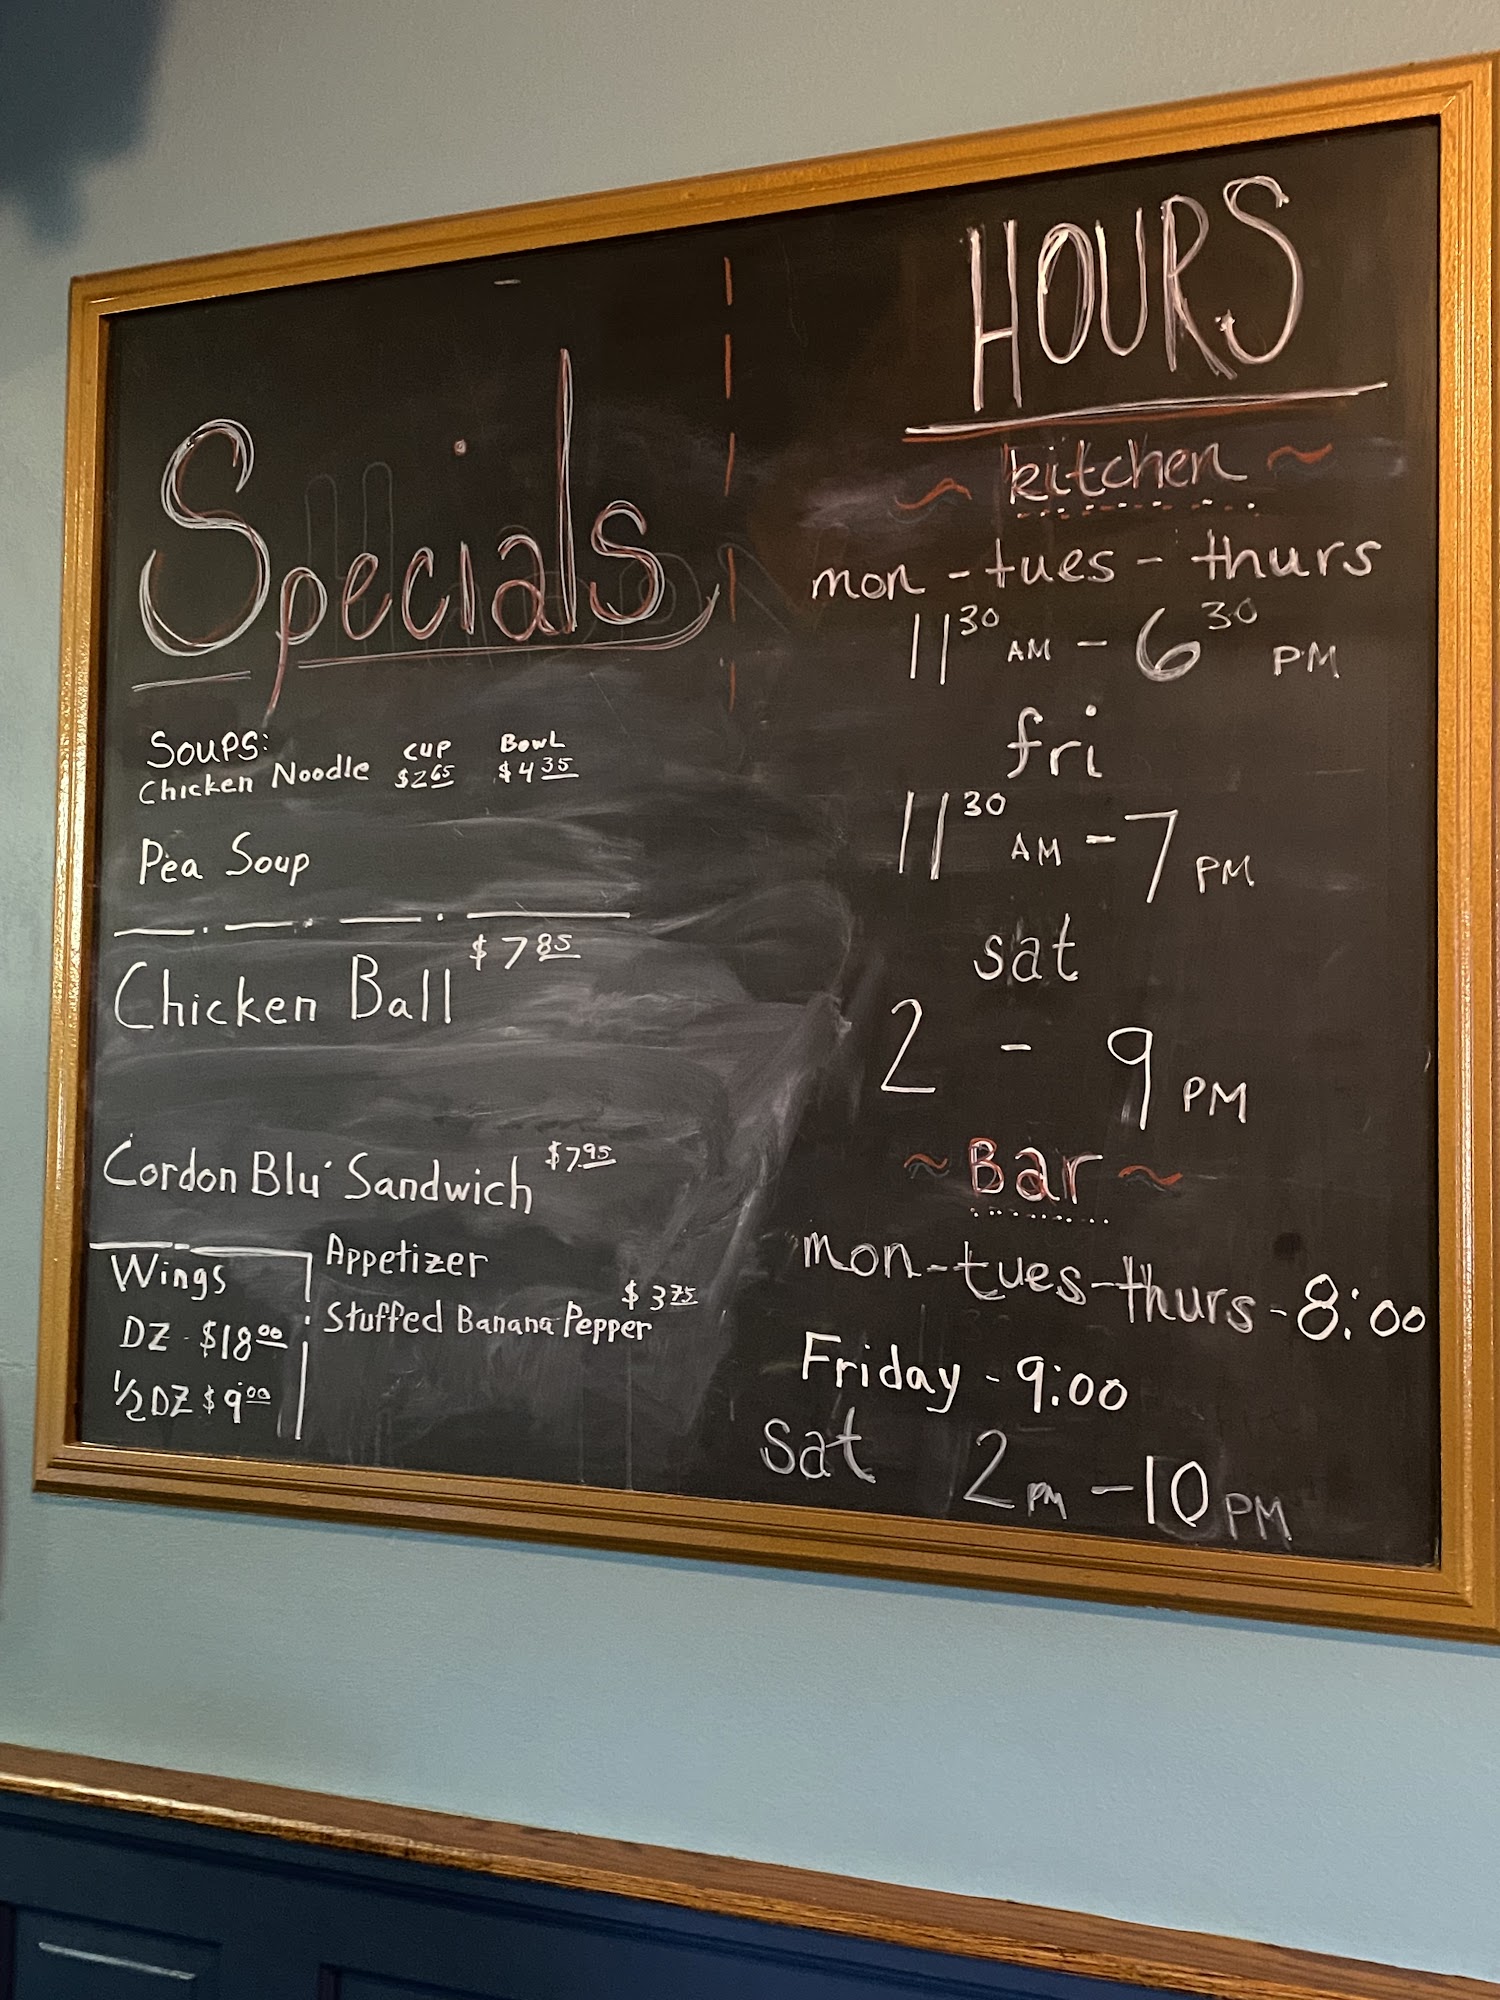 Specials
SOUPS: CUP BOWL
Chicken Noodle $2.65 $4.35
Pea Soup
Chicken Ball $7.85
Cordon Blu' Sandwich $7.95
Wings
DZ - $18.00
1/2 DZ $9.00
Appetizer
$3.75
Stuffed Banana Pepper
HOURS
~ kitchen ~
mon - tues - thurs
11 30 AM - 6 30 PM
fri
11 30 AM - 7 PM
sat
2 - 9 PM
~ Bar ~
mon - tues - thurs - 8:00
Friday - 9:00
sat 2 PM - 10 PM